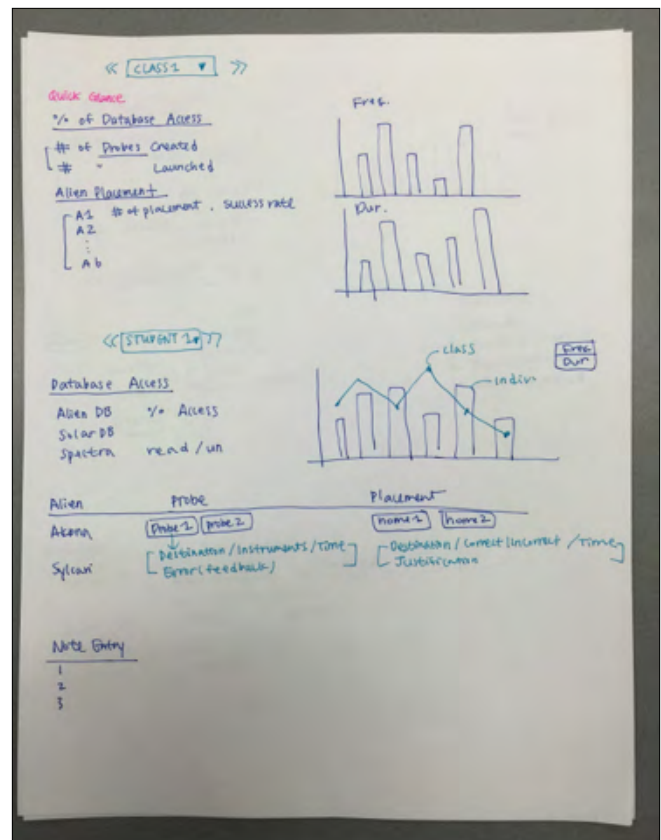 << CLASS 1 ▼ >>
Quick Glance
% of Database Access
# of Probes Created
# " Launched
Alien Placement
A1 # of placement, success rate
A2
⋮
A6
Freq.
Dur.
<< STUDENT 1 ▼ >>
Database Access
Alien DB % Access
Solar DB
Spectra read / un
class
indiv
Freq.
Dur
Alien Probe Placement
Akona Probe 1 probe 2 home 1 home 2
Destination / Instruments / Time
Error (feedback)
Destination / Correct | Incorrect / Time
Justification
Sylcari
Note Entry
1
2
3